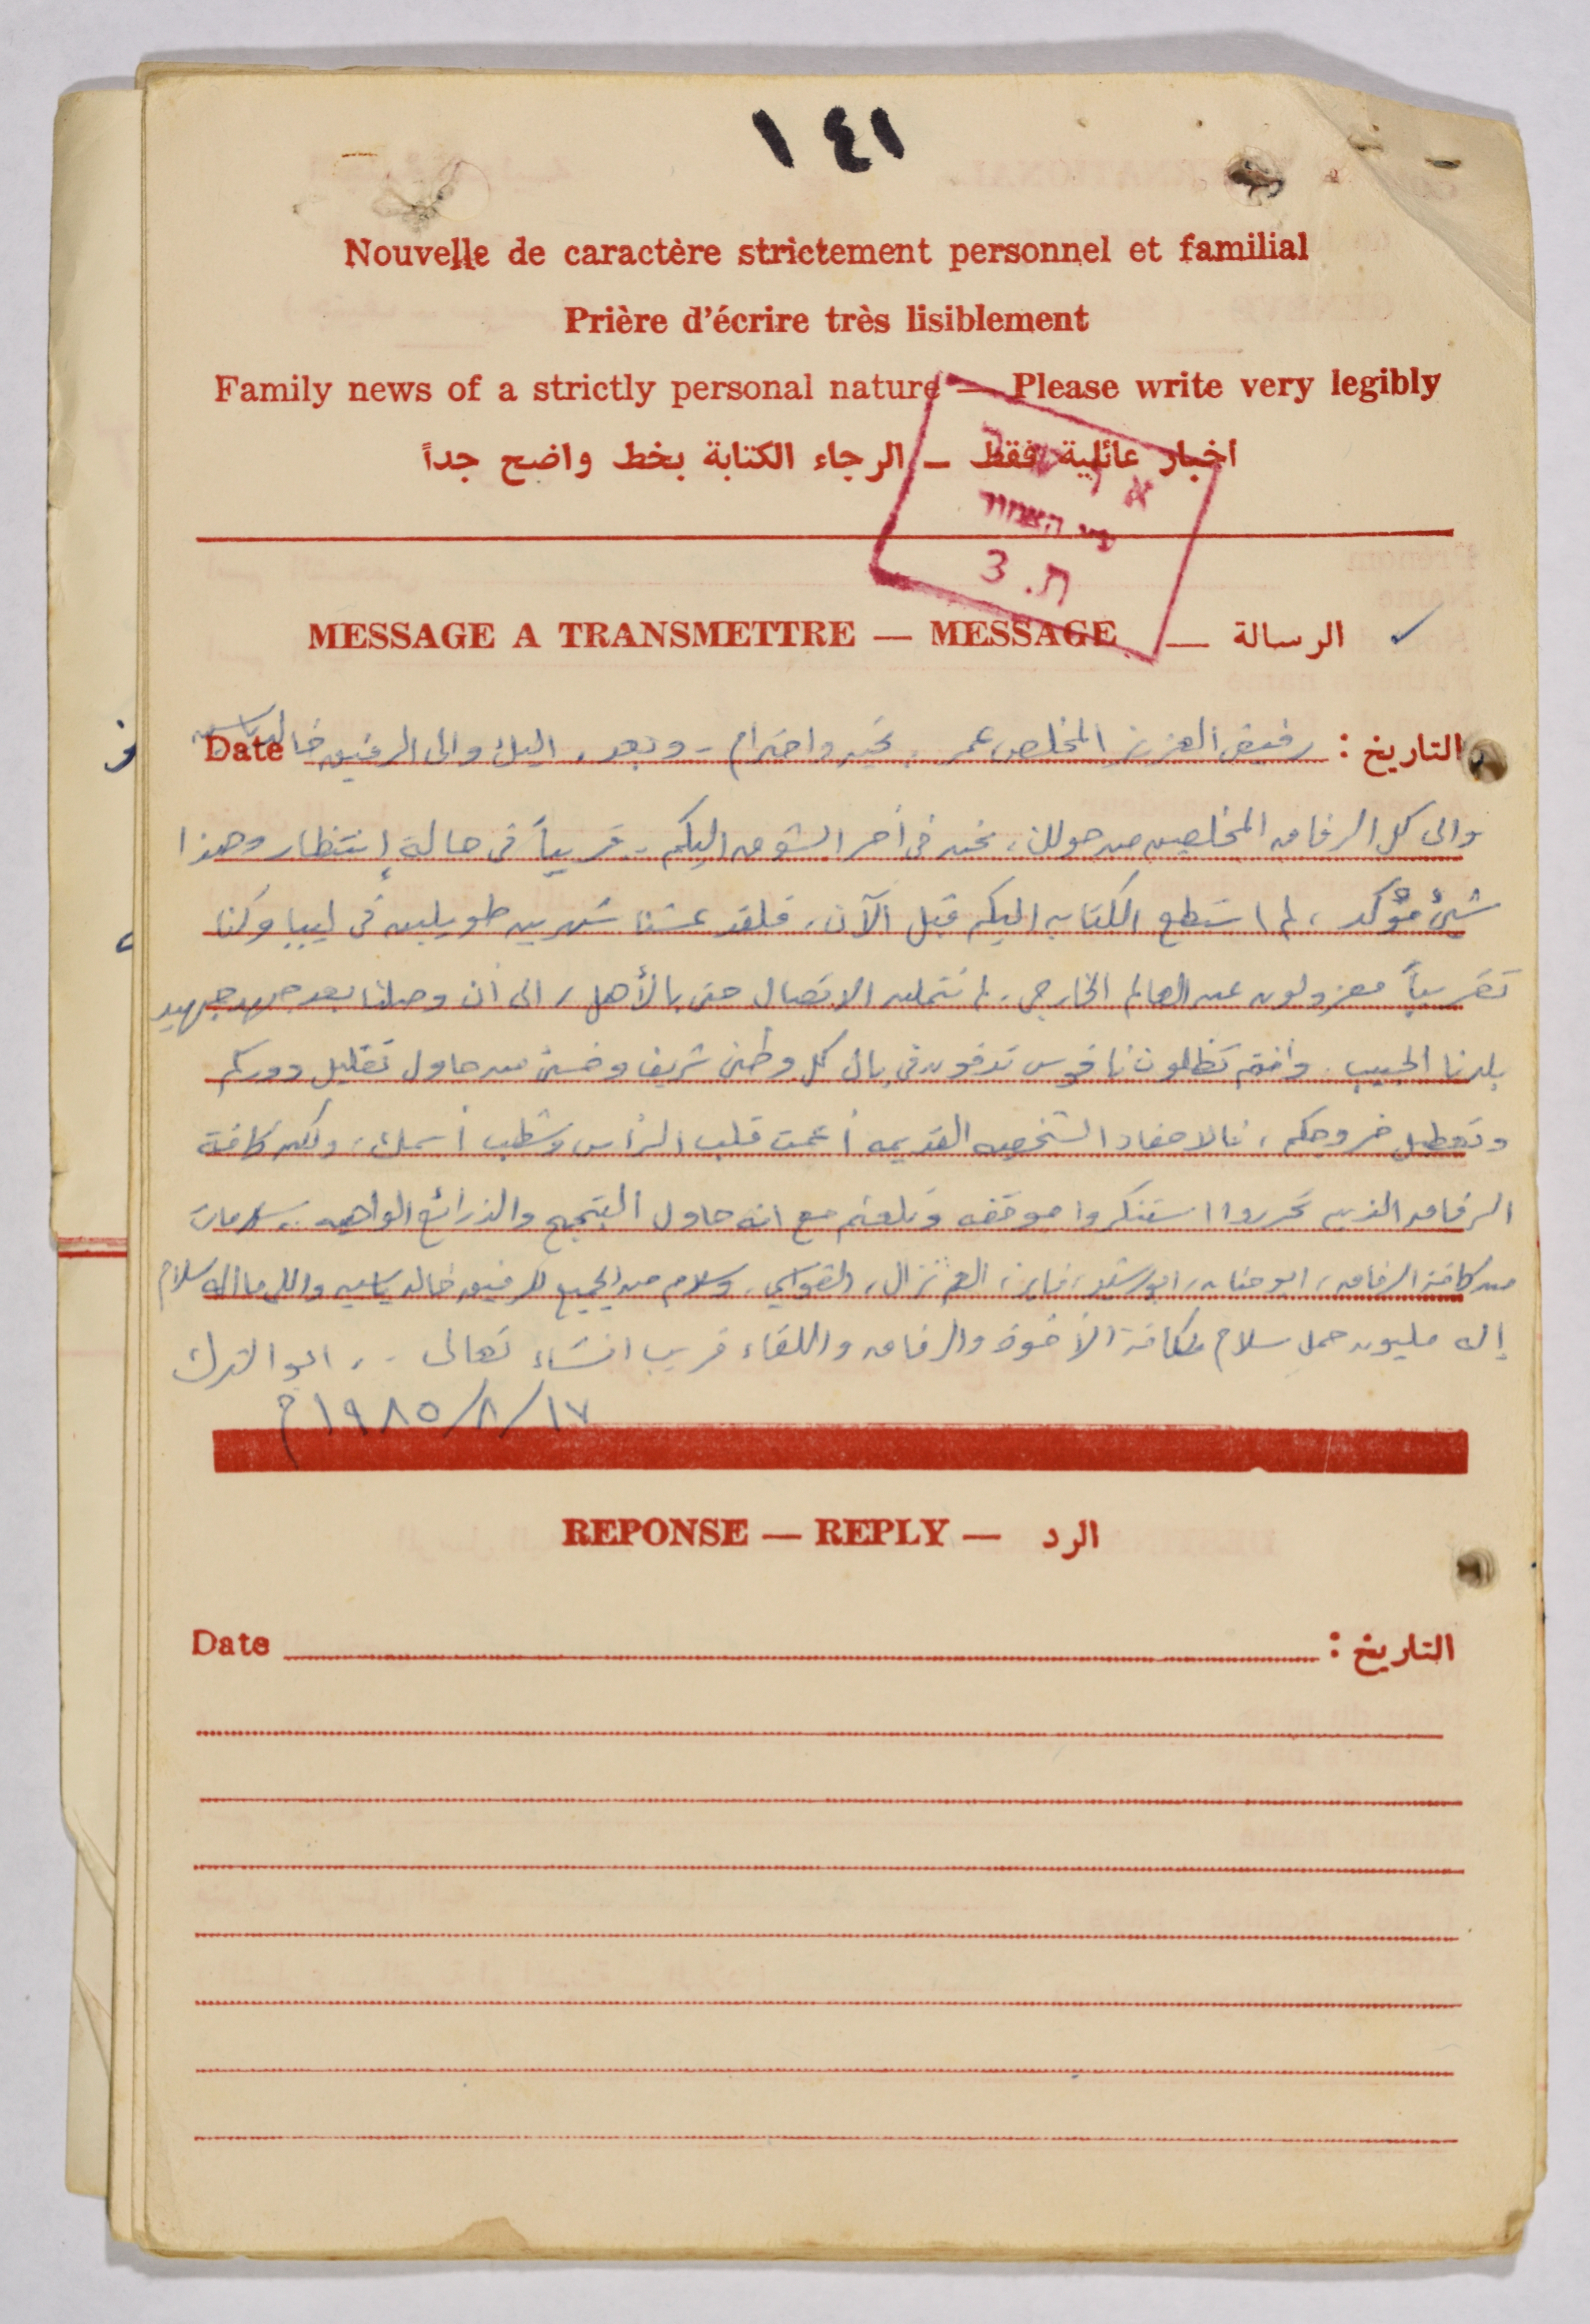 ١٤١
Nouvelle de caractère strictement personnel et familial
Prière d'écrire très lisiblement
Family news of a strictly personal nature — Please write very legibly
اخبار عائلية فقط – الرجاء الكتابة بخط واضح جداً
ת. 3
MESSAGE A TRANSMETTRE — MESSAGE — الرسالة
Date التاريخ : رفيقي العزيز المخلص عمر . تحيه واحترام - وبعد، اليك والى الرفيق خالد ياسين
والى كل الرفاق المخلصين من حولك، نحن في أحر الشوق اليكم .. قريباً في حالة إنتظار وهذا
شيئ مؤكد، لم استطع الكتابه اليكم قبل الآن، فلقد عشنا شهرين طويلين في ليبيا وكنا
تقريباً معزولون عن العالم الخارجي. لم نتمكن الاتصال حتى بالأهل، الى أن وصلنا بعد جهد جهيد
بلدنا الحبيب. وأنتم تظلون ناقوس تدقون في بال كل وطني شريف وخسئ من حاول تقليل دوركم
وتعطيل خروجكم، فالاحقاد الشخصيه القديمه أعمت قلب الرأس وشطب أسمك، ولكن كافة
الرفاق الذين تحرروا استنكروا موقفه وتلعثم مع انه حاول التبجح والذرائع الواهيه .. سلامات
من كافة الرفاق، ابو حنان، ابو رشيد، فايز، العم نزال، القواسمي، وسلام من الجميع للرفيق خالد ياسين واللي ما اله سلام
إله مليون حمل سلام لكافة الأخوة والرفاق واللقاء قريب انشاء تعالى .. ابو الترك
١٧/٨/١٩٨٥م
REPONSE — REPLY — الرد
Date التاريخ :